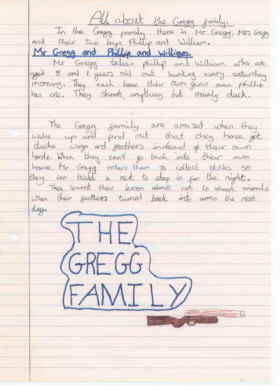 All about the Gregg family.
In the Gregg family there is Mr Gregg, Mrs Gregg
and their two boys Phillip and William.
Mr Gregg and Phillip and William.
Mr Gregg takes phillip and william who are
aged 8 and 6 years old out hunting every saturday
morning. They each have their own guns even phillip
has one. They shoot anything but mainly duck.
The Gregg family are amazed when they
wake up and find out that they have got
ducks wings and feathers instead of their own
hands. When they can't go back into their own
house, Mr Gregg orders them to collect sticks so
they can make a nest to sleep in for the night.
They learnt their lesson about not to shoot animals
when their feathers turned back into arms the next
day.
THE
GREGG
FAMILY